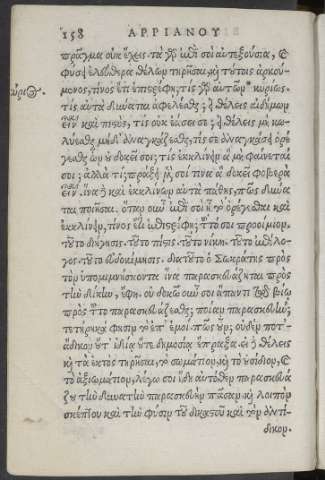 158 ΑΡΡΙΑΝΟΥ
πρᾶγμα οὐκ ἔχεις· τὰ γὰρ ἐπὶ σοὶ αὐτεξούσια, καὶ
φύσει ἐλεύθερα. θέλων τηρῆσαι καὶ τούτοις ἀρκού-
μενος, τίνος ἔτι ἐπιστρέφῃ; τίς γὰρ αὐτῶν κύριος.
κύριος
τίς αὐτὰ δύναται ἀφελέσθαι; εἰ θέλεις αἰδήμων
εἶναι καὶ πιστὸς, τίς οὐκ ἐάσει σε; εἰ θέλεις μὴ κω-
λύεσθαι μηδ' ἀναγκάζεσθαι, τίς σε ἀναγκάσει ὀρέ
γεσθαι ὧν οὐ δοκεῖ σοι; τίς ἐκκλίνειν ἃ μὴ φαίνεταί
σοι; ἀλλὰ τί; πράξει μέν σοί τινα ἃ δοκεῖ φοβερὰ
εἶναι. ἵνα δὲ καὶ ἐκκλίνων αὐτὰ πάθῃς, πῶς δύνα
ται ποιῆσαι. ὅταν οὖν ἐπὶ σοὶ ᾖ τὸ ὀρέγεσθαι καὶ
ἐκκλίνειν, τίνος ἔτι ἐπιστρέφῃ; τοῦτό σοι προοίμιον,
τοῦτο διήγησις. τοῦτο πίστις. τοῦτο νίκη. τοῦτο ἐπίλο-
γος. τοῦτο εὐδοκίμησις. διὰ τοῦτο ὁ Σωκράτης πρὸς
τὸν ὑπομιμνήσκοντα ἵνα παρασκευάζηται πρὸς
τὴν δίκην, ἔφη. οὐ δοκῶ οὖν σοι ἅπαντι τῷ βίῳ
πρὸς τοῦτο παρασκευάζεσθαι; ποίαν παρασκευήν;
τετήρηκα φησὶν τὸ ἐπ' ἐμοί. πῶς οὖν; οὐδὲν ποτ-
ἄδικον οὔτ' ἰδίᾳ οὔτε δημοσίᾳ ἔπραξα. εἰ δὲ θέλεις
καὶ τὰ ἐκτὸς τηρῆσαι, τὸ σωμάτιον, καὶ τὸ οὐσίδιον, καὶ
τὸ ἀξιωμάτιον, λέγω σοι ἤδη αὐτόθεν παρασκευά
ζου τὴν δυνατὴν παρασκευὴν πᾶσαν, καὶ λοιπὸν
σκέπτου καὶ τὴν φύσιν τοῦ δικαστοῦ καὶ τὸν ἀντί-
δικον.